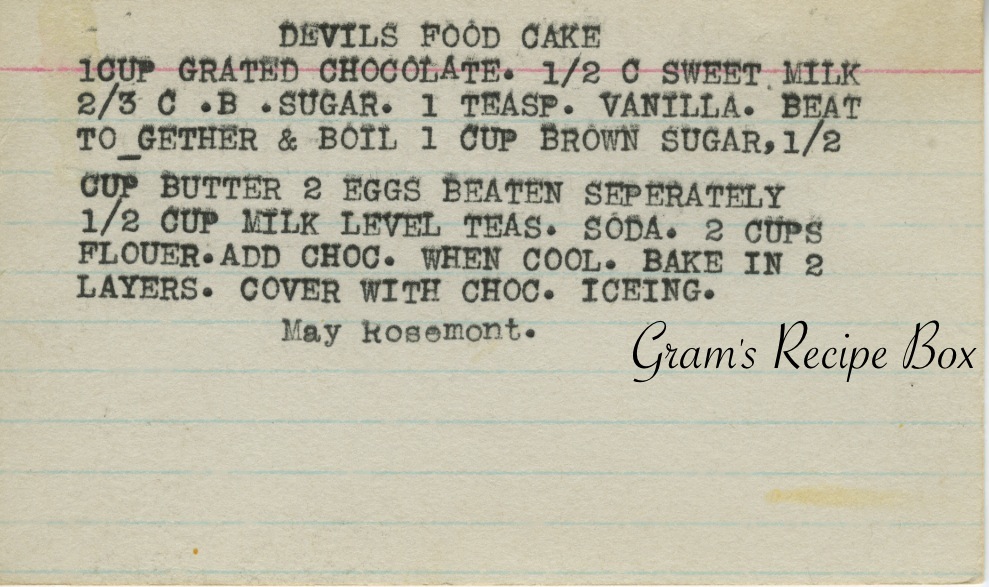 DEVILS FOOD CAKE
1CUP GRATED CHOCOLATE. 1/2 C SWEET MILK
2/3 C .B .SUGAR. 1 TEASP. VANILLA. BEAT
TO_GETHER & BOIL 1 CUP BROWN SUGAR,1/2
CUP BUTTER 2 EGGS BEATEN SEPERATELY
1/2 CUP MILK LEVEL TEAS. SODA. 2 CUPS
FLOUER.ADD CHOC. WHEN COOL. BAKE IN 2
LAYERS. COVER WITH CHOC. ICEING.
May Rosemont.
Gram's Recipe Box